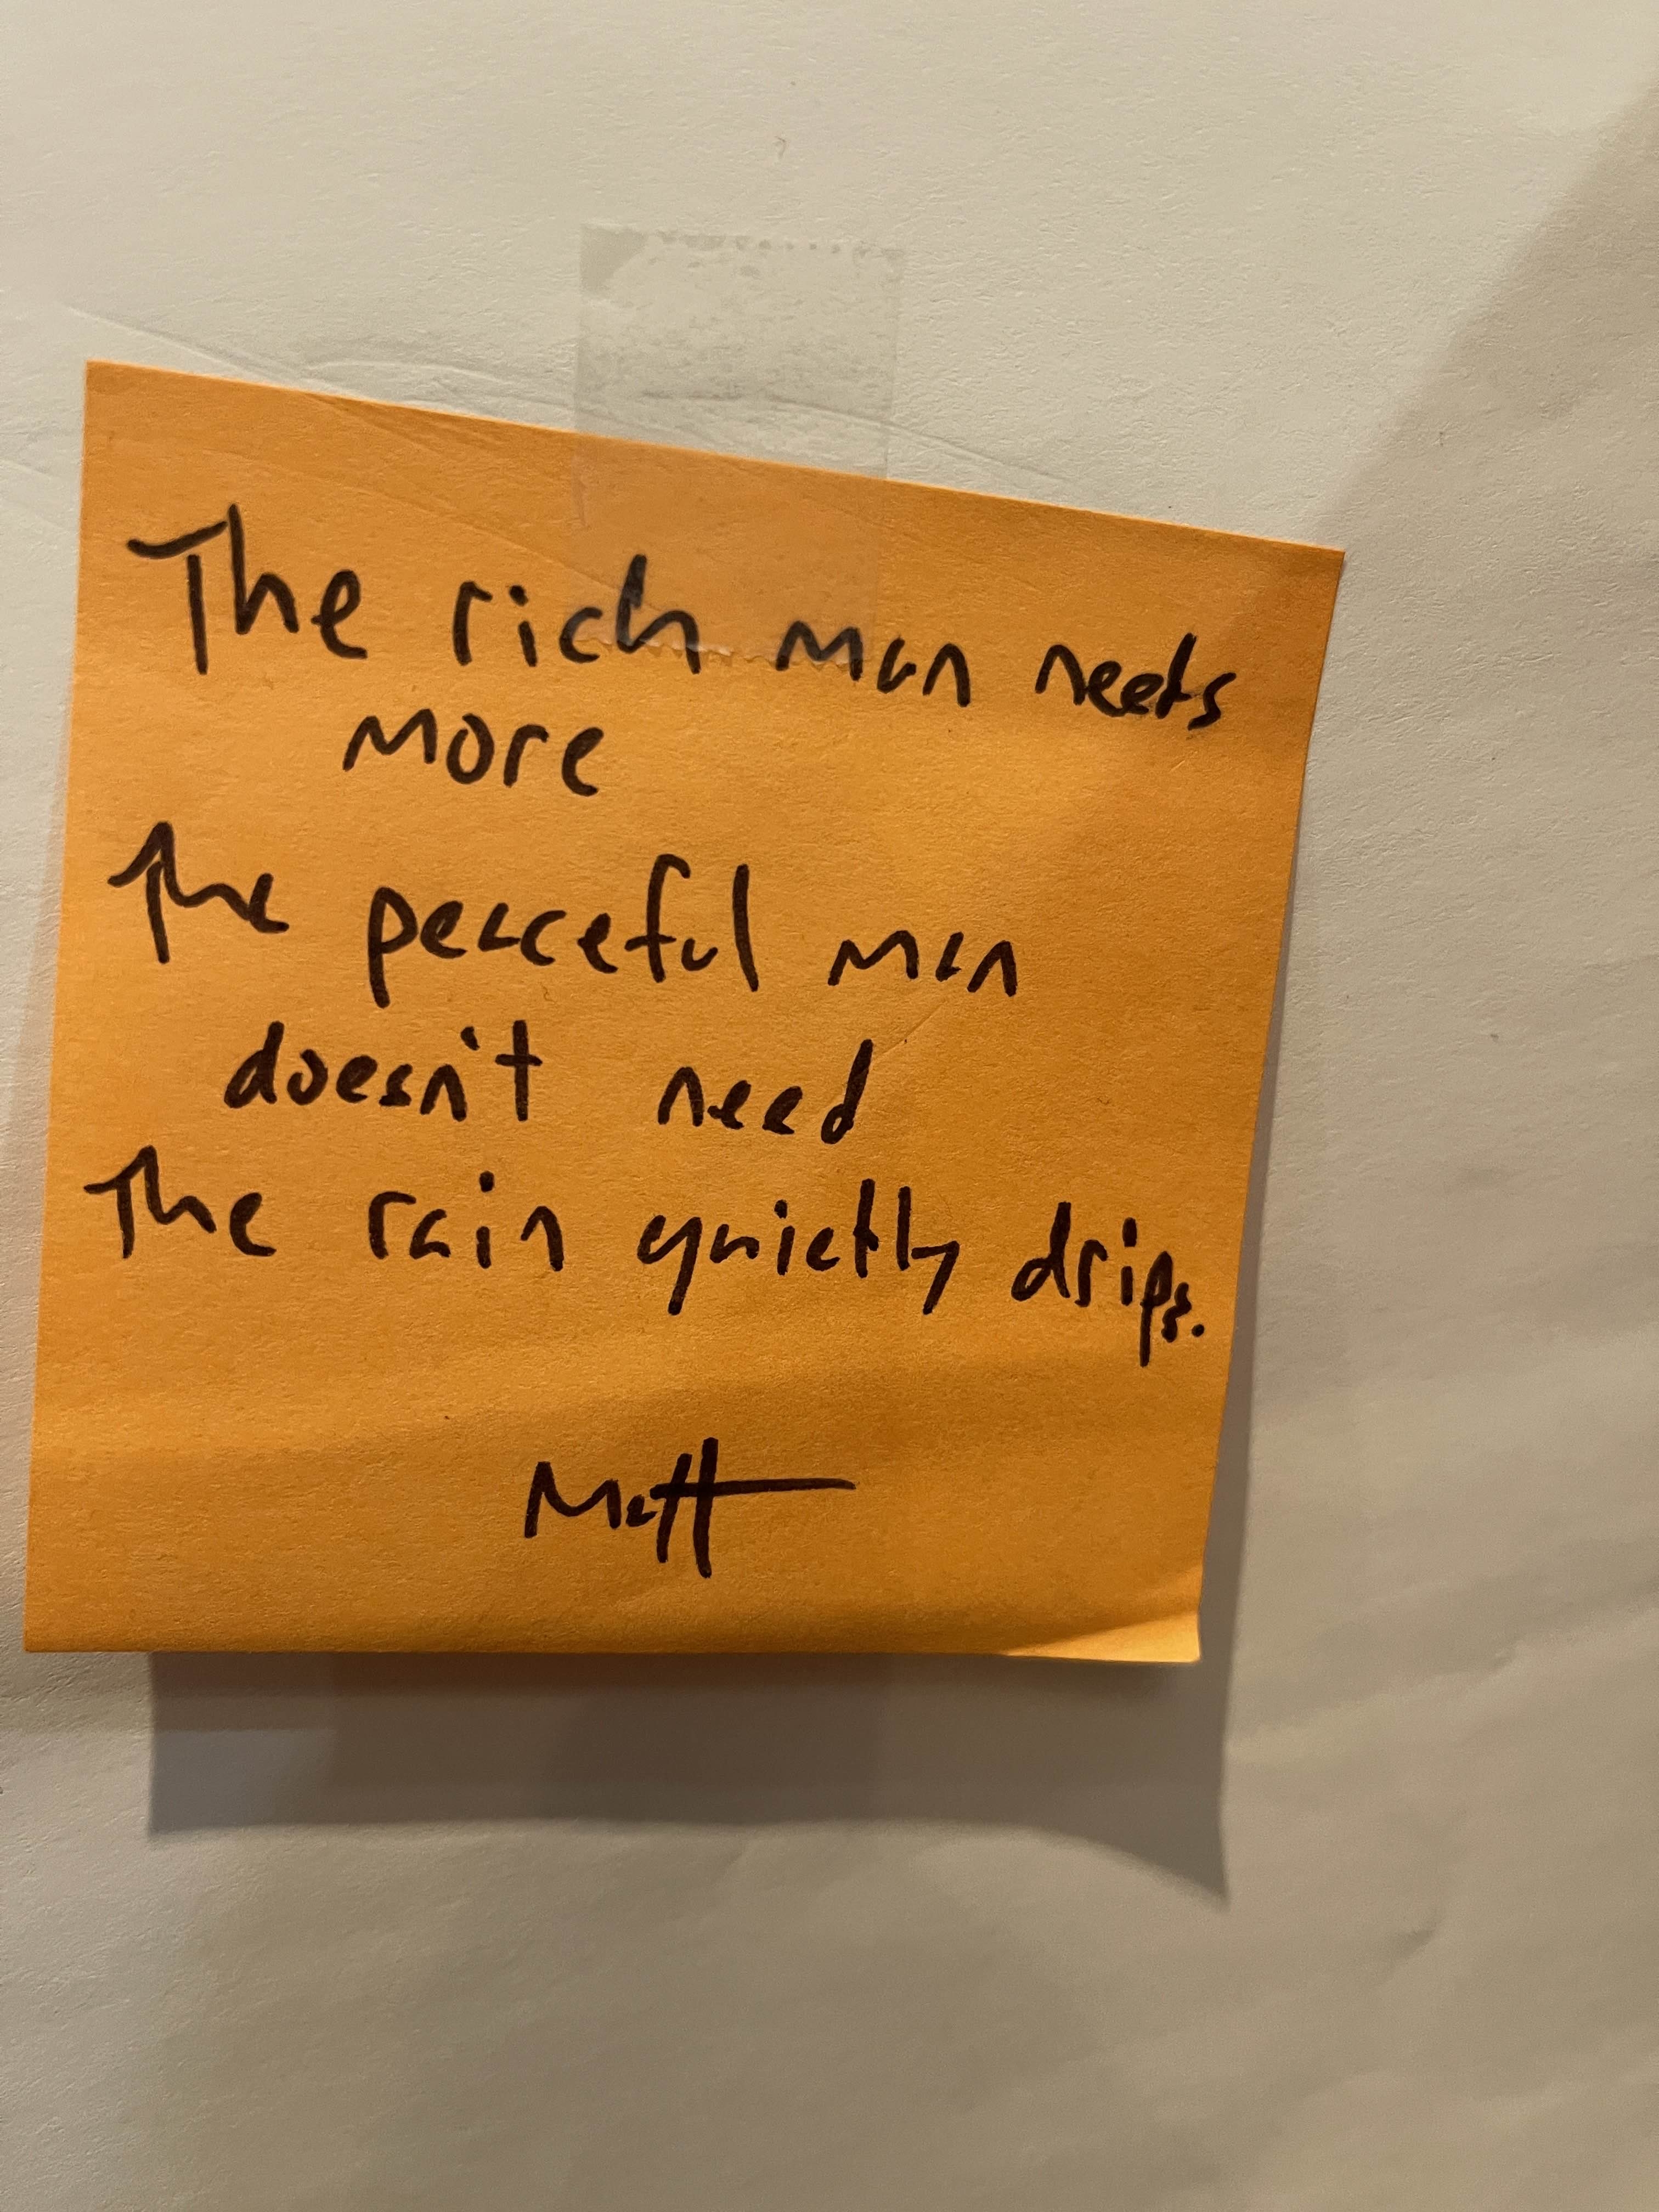 The rich man needs
more
The peaceful man
doesn't need
The rain quietly drips.
Matt